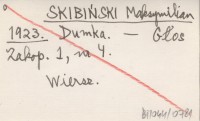 SKIBIŃSKI Maksymilian
1923. Dumka. — Głos
Zakop. 1, nr 4.
Wiersz.